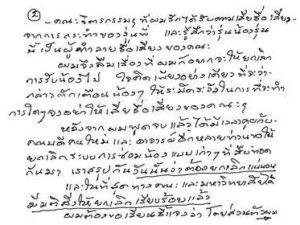 ②
- คณะจิตรกรรมฯ ที่ผมรักได้รับความเสียชื่อเสียง
จากการกระทำของรุ่นพี่ และรู้สึกว่ารุ่นน้องรุ่น
นี้เป็นผู้ทำลายชื่อเสียงของคณะ
ผมจึงลืมเรื่องที่ผมก็อยากจะให้ยกเลิก
การรับน้องไป ใจคิดเพียงอย่างเดียวที่จะว่า
กล่าวตักเตือนน้องๆ ให้ระมัดระวังในการที่จะทำ
การใดๆ อย่าให้เสียชื่อเสียงของคณะฯ
หลังจากผมพูดจบแล้ว ได้มีเวลาคุยกับ
คณบดีคนใหม่ และอาจารย์อีกหลายท่านขอให้
ยกเลิกระบบการซ่อมน้องแบบเก่าๆ ที่สืบทอด
กันมา เราสรุปกันวันนั้นว่าต้องยกเลิกแน่นอน
และในที่สุดทางคณะ และมหาวิทยาลัยได้
มีมติสั่งให้ยกเลิกเรียบร้อยแล้ว
ผมต้องขอเรียนชี้แจงว่า โดยส่วนตัวผม